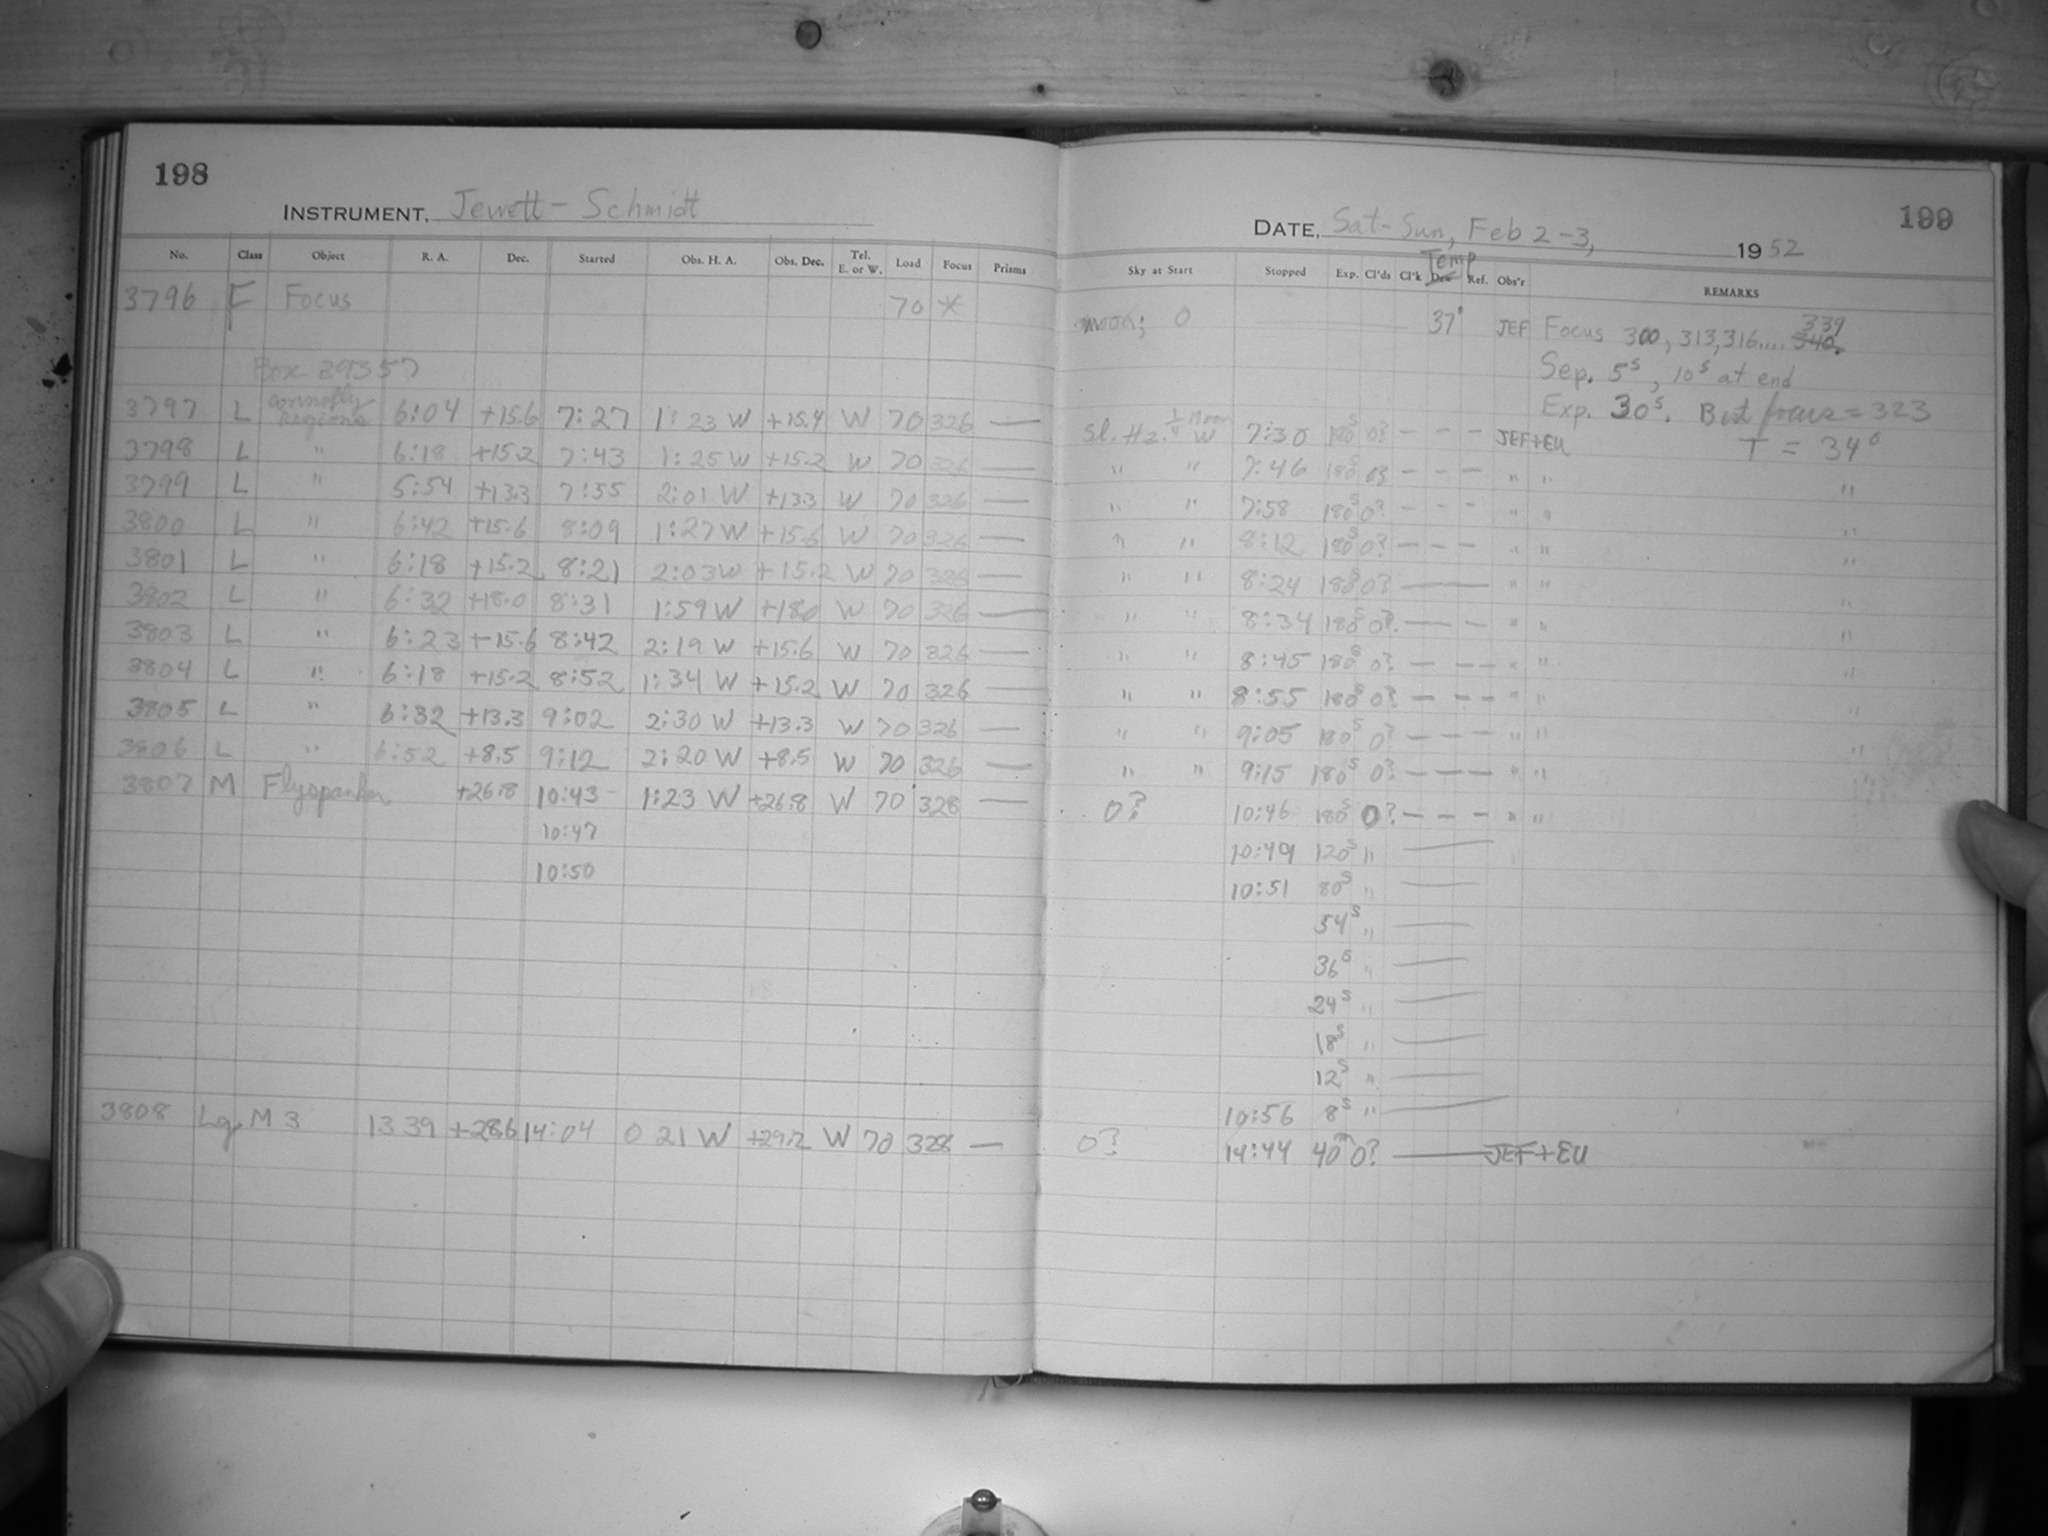 198
INSTRUMENT, Jewett-Schmidt
No. Class Object R. A. Dec. Started Obs. H. A. Obs. Dec. Tel. E. or W. Load Focus Prisms
3796 F Focus 70 *
Box 39357
3797 L regions 6:04 +15.6 7:27 1:23 W +15.4 W 70 326 —
3798 L " 6:18 +15.2 7:43 1:25 W +15.2 W 70 326 —
3799 L " 5:54 +13.3 7:55 2:01 W +13.3 W 70 326 —
3800 L " 6:42 +15.6 8:09 1:27 W +15.6 W 70 326 —
3801 L " 6:18 +15.2 8:21 2:03 W +15.2 W 70 326 —
3802 L " 6:32 +18.0 8:31 1:59 W +18.0 W 70 326 —
3803 L " 6:23 +15.6 8:42 2:19 W +15.6 W 70 326 —
3804 L " 6:18 +15.2 8:52 1:34 W +15.2 W 70 326 —
3805 L " 6:32 +13.3 9:02 2:30 W +13.3 W 70 326 —
3806 L " 6:52 +8.5 9:12 2:20 W +8.5 W 70 326 —
3807 M +26.8 10:43 1:23 W +26.8 W 70 328 —
10:47
10:50
3808 Lg M 3 13 39 +28.6 14:04 0 21 W +29.2 W 70 328 —
199
DATE, Sat-Sun, Feb 2-3, 1952
Temp
Sky at Start Stopped Exp. Cl'ds Cl'k Dew Ref. Obs'r REMARKS
moon; 0 37° JEF Focus 300, 313, 316.... 340. 339
Sep. 5s, 10s at end
Exp. 30s. Best focus = 323
Sl. Hz. 1/4 Moon W 7:30 180s 0? — — — JEF+EU T = 34°
" " 7:46 180s 0? — — — " " "
" " 7:58 180s 0? — — — " " "
" " 8:12 180s 0? — — — " " "
" " 8:24 180s 0? — — " " "
" " 8:34 180s 0? — — " " "
" " 8:45 180s 0? — — — " " "
" " 8:55 180s 0? — — — " " "
" " 9:05 180s 0? — — — " " "
" " 9:15 180s 0? — — — " "
0? 10:46 180s 0? — — — " "
10:49 120s " —
10:51 80s " —
54s " —
36s " —
24s " —
18s " —
12s " —
10:56 8s " —
0? 14:44 40m 0? — JEF+EU